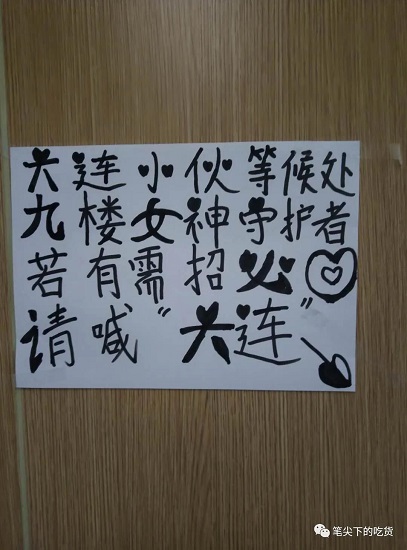 大连小伙等候处
九楼女神守护者
若有需招必
请喊“大连”
笔尖下的吃货